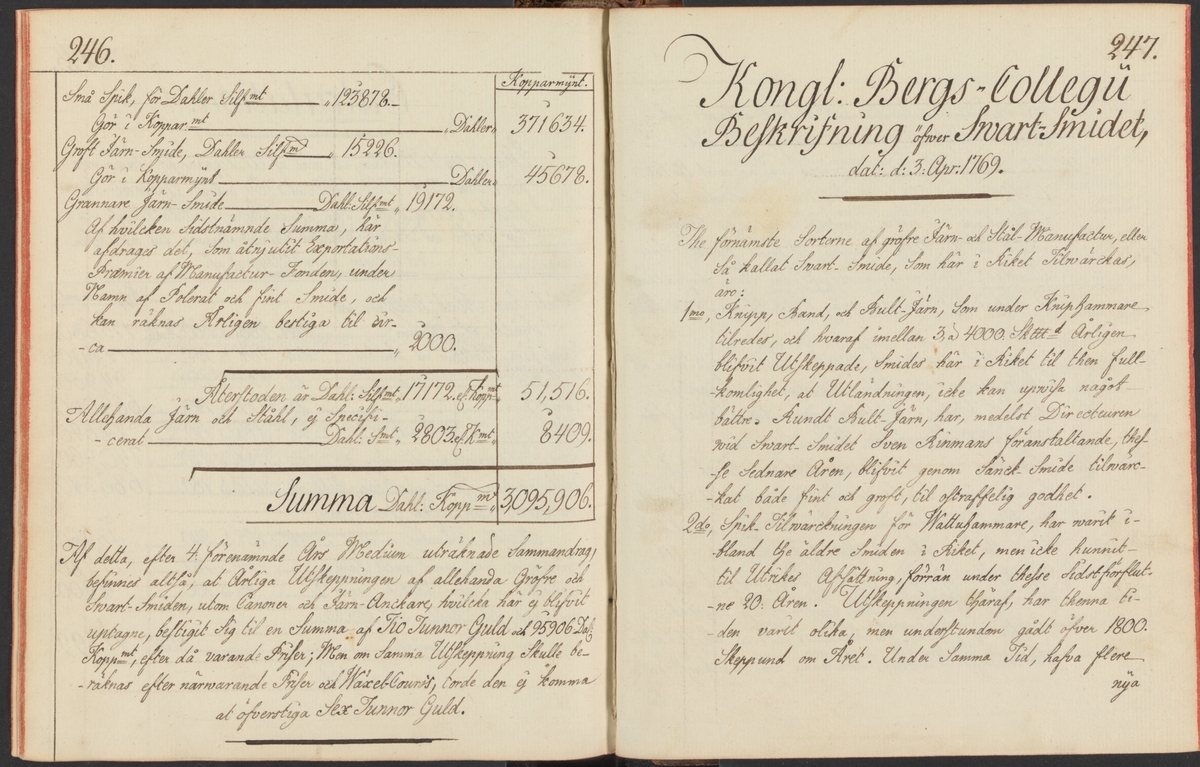 246.
Kopparmÿnt.
Små Spik, för Dahler Silfmt „ 123878.
Gör i Kopparmt „ Dahler „ 371634.
Groft Järn-Smide, Dahler Silfmt „ 15226.
Gör i Kopparmÿnt Dahler „ 45678.
Grannare Järn-Smide Dahl: Silfmt „ 19172.
Af hvilcken Sidstnämnde Summa, här
afdrages det, Som åtnjutit Exportations-
Præmier af Manufactur-Fonden, under
Namn af Polerat och fint Smide, och
kan räknas Årligen bestiga til cir-
-ca „ 2000.
Återstoden är Dahl: Silfmt „ 17172. ell Koppmt „ 51,516.
Allehanda Järn och Ståhl, ej Specifi-
-cerat Dahl: Smt „ 2803. ell Kmt „ 8409.
Summa Dahl: Koppmt „ 3,095,906.
Af detta, efter 4. förenämnde Års Medium uträknade Sammandrag,
befinnes altså, at Årliga Utskeppningen af allehanda Gröfre och
Svart-Smiden, utom Canoner och Järn-Anckare, hvilcka här ej blifvit
uptagne, bestigit Sig til en Summa af Tio Tunnor Guld och 95906 Dalr
Koppmt, efter då varande Priser; Men om Samma Utskeppning Skulle be-
-räknas efter närvarande Priser och Wäxel-Cours, torde den ej komma
at öfverstiga Sex Tunnor Guld.
247.
Kongl: Bergs-Collegii
Beskrifning öfwer Swart-Smidet,
dat: d: 3: Apr: 1769.
The förnämste Sorterne af gröfre Järn- och Stål-Manufactur, eller
Så kallat Swart-Smide, Som här i Riket Tilwärckas,
äro:
1mo, Knipp, Band, och Bult-Järn, Som under Kniphammare
tilredes, och hvaraf imellan 3 à 4000. Sk℔d Årligen
blifvit Utskeppade, Smides här i Riket til then full-
-komlighet, at Utländningen, icke kan upvisa något
bättre. Rundt Bult-Järn, har, medelst Directeuren
wid Swart-Smidet Sven Rinmans föranstaltande, thes-
-se Sednare Åren, blifvit genom Sänck-Smide tilwärc-
-kat både fint och groft, til ostraffelig godhet.
2do, Spik. Tilwärckningen för Wattuhammare, har warit i-
bland the äldre Smiden i Riket, men icke hunnit
til Utrikes Afsättning, förrän under thesse Sidstförflut-
-ne 20. Åren. Utskeppningen thäraf, har thenna ti-
-den varit olika, men understundom gådt öfver 1800.
Skeppund om Året. Under Samma Tid, hafva flere
nÿa